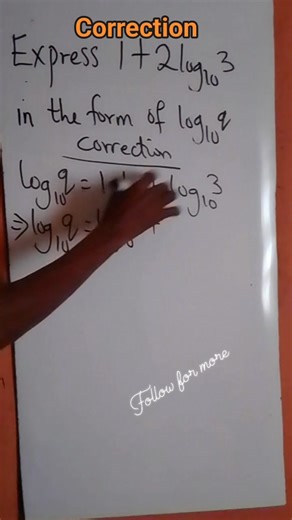 Correction
Express 1+2log₁₀3
in the form of log₁₀q
correction
log₁₀q = 1 log₁₀3
⇒ log₁₀q =
Follow for more